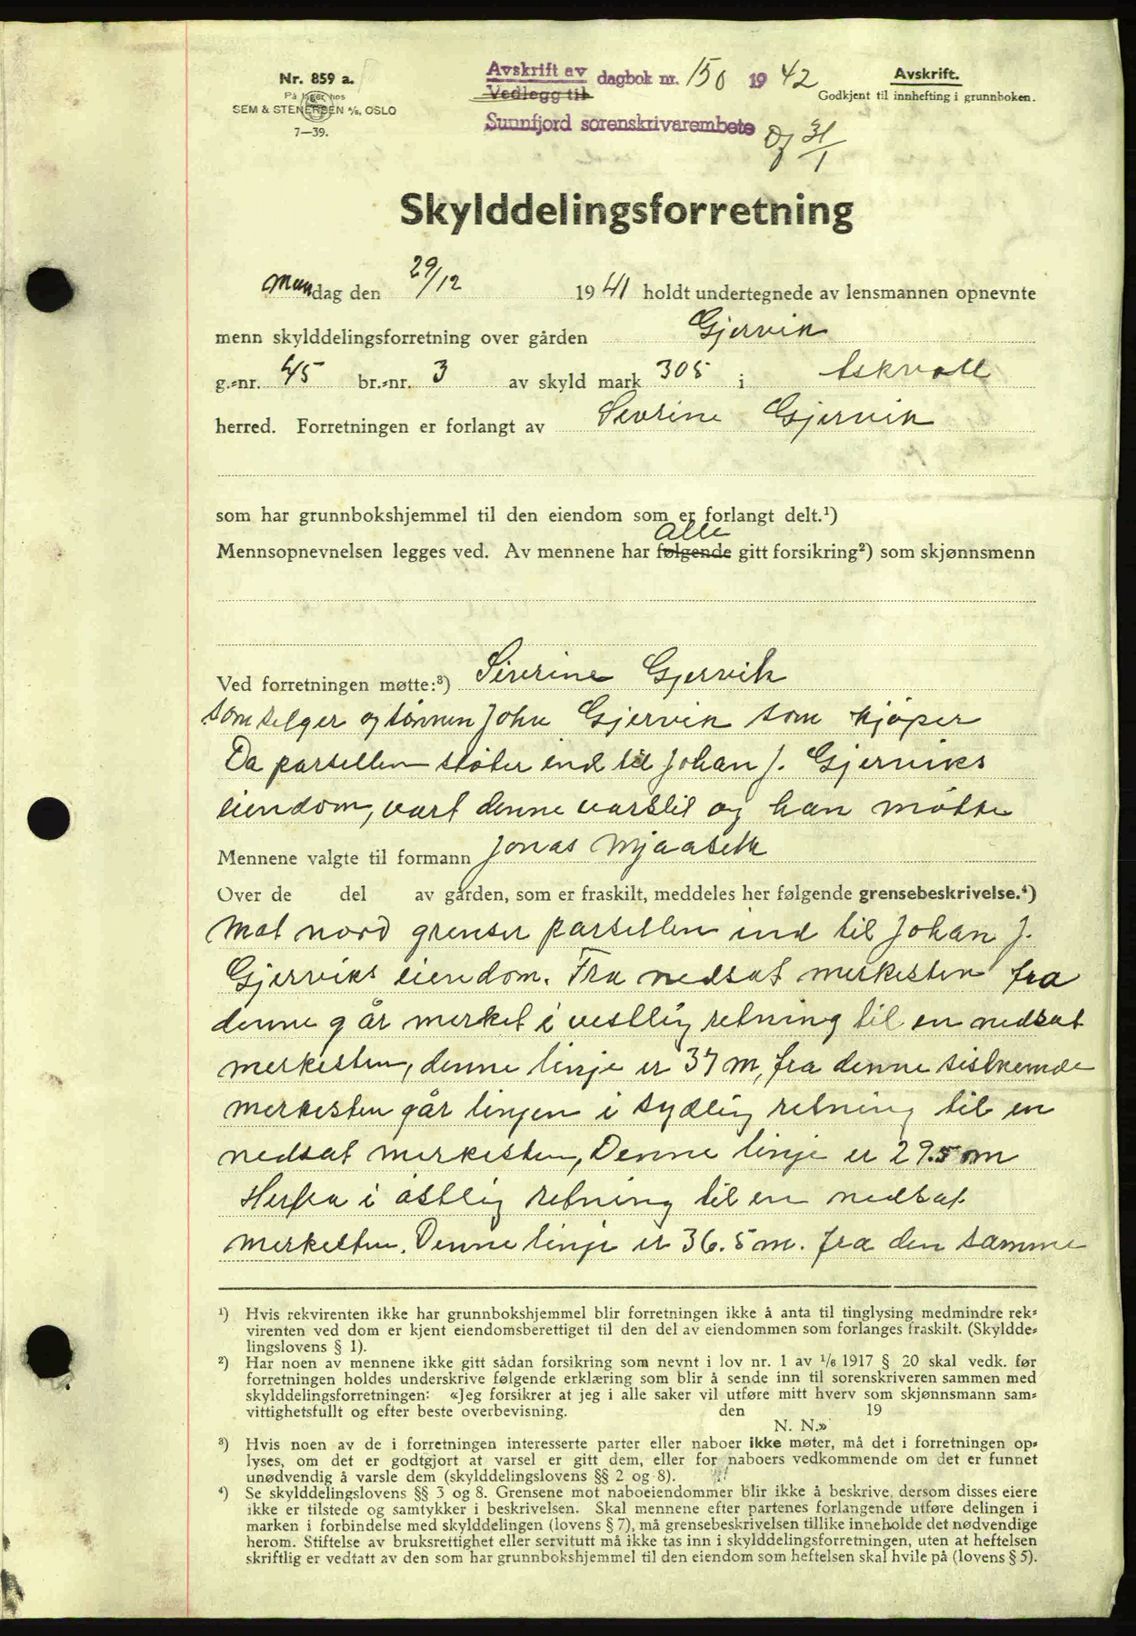 Nr. 859 a.
På lager hos
SEM & STENERSEN A/S, OSLO
7—39.
Avskrift av
Vedlegg til
dagbok nr. 150 1942
Sunnfjord sorenskrivarembete
Avskrift.
Godkjent til innhefting i grunnboken.
31/1
Skylddelingsforretning
Mandag den 29/12 1941 holdt undertegnede av lensmannen opnevnte
menn skylddelingsforretning over gården Gjervik
g.-nr. 45 br.-nr. 3 av skyld mark 305 i Askvoll
herred. Forretningen er forlangt av Sevrine Gjervik
som har grunnbokshjemmel til den eiendom som er forlangt delt.¹)
alle
Mennsopnevnelsen legges ved. Av mennene har følgende gitt forsikring²) som skjønnsmenn
Ved forretningen møtte:³) Siverine Gjervik
som selger og sønnen John Gjervik som kjøper
Da parsellen støter ind til Johan J. Gjerviks
eiendom, vart denne varslet og han møtte
Mennene valgte til formann Jonas Mjaaseth
Over de del av gården, som er fraskilt, meddeles her følgende grensebeskrivelse.⁴)
Mot nord grenser parsellen ind til Johan J.
Gjerviks eiendom. Fra nedsat merkesten fra
denne går merket i vestlig retning til en nedsat
merkesten, denne linje er 37 m, fra denne sistnemde
merkesten går linjen i sydlig retning til en
nedsat merkesten, Denne linje er 29.5 m
Herfra i østlig retning til en nedsat
merkesten. Denne linje er 36.5 m. fra den samme
¹) Hvis rekvirenten ikke har grunnbokshjemmel blir forretningen ikke å anta til tinglysing medmindre rek-
virenten ved dom er kjent eiendomsberettiget til den del av eiendommen som forlanges fraskilt. (Skyldde-
lingslovens § 1).
²) Har noen av mennene ikke gitt sådan forsikring som nevnt i lov nr. 1 av 1/6 1917 § 20 skal vedk. før
forretningen holdes underskrive følgende erklæring som blir å sende inn til sorenskriveren sammen med
skylddelingsforretningen: «Jeg forsikrer at jeg i alle saker vil utføre mitt hverv som skjønnsmann sam-
vittighetsfullt og efter beste overbevisning. den 19
N. N.»
³) Hvis noen av de i forretningen interesserte parter eller naboer ikke møter, må det i forretningen op-
lyses, om det er godtgjort at varsel er gitt dem, eller for naboers vedkommende om det er funnet
unødvendig å varsle dem (skylddelingslovens §§ 2 og 8).
⁴) Se skylddelingslovens §§ 3 og 8. Grensene mot naboeiendommer blir ikke å beskrive, dersom disses eiere
ikke er tilstede og samtykker i beskrivelsen. Skal mennene efter partenes forlangende utføre delingen i
marken i forbindelse med skylddelingen (lovens § 7), må grensebeskrivelsen tillike inneholde det nødvendige
herom. Stiftelse av bruksrettighet eller servitutt må ikke tas inn i skylddelingsforretningen, uten at heftelsen
skriftlig er vedtatt av den som har grunnbokshjemmel til den eiendom som heftelsen skal hvile på (lovens § 5).